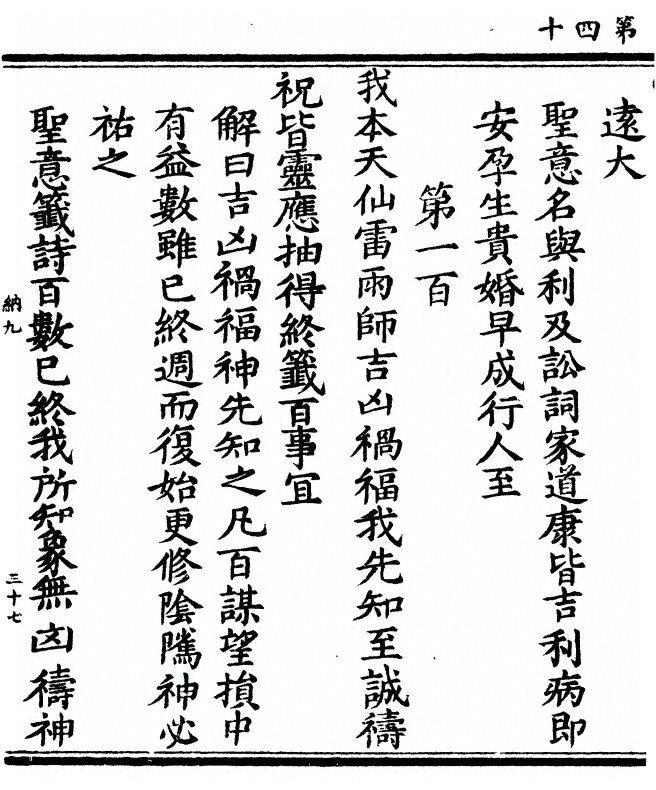 第四十
遠大
聖意名與利及訟詞家道康皆吉利病即
安孕生貴婚早成行人至
第一百
我本天仙雷雨師吉凶禍福我先知至誠禱
祝皆靈應抽得終籤百事宜
解曰吉凶禍福神先知之凡百謀望損中
有益數雖已終週而復始更修隂隲神必
祐之
聖意籤詩百數已終我所知象無凶禱神
納九
三十七